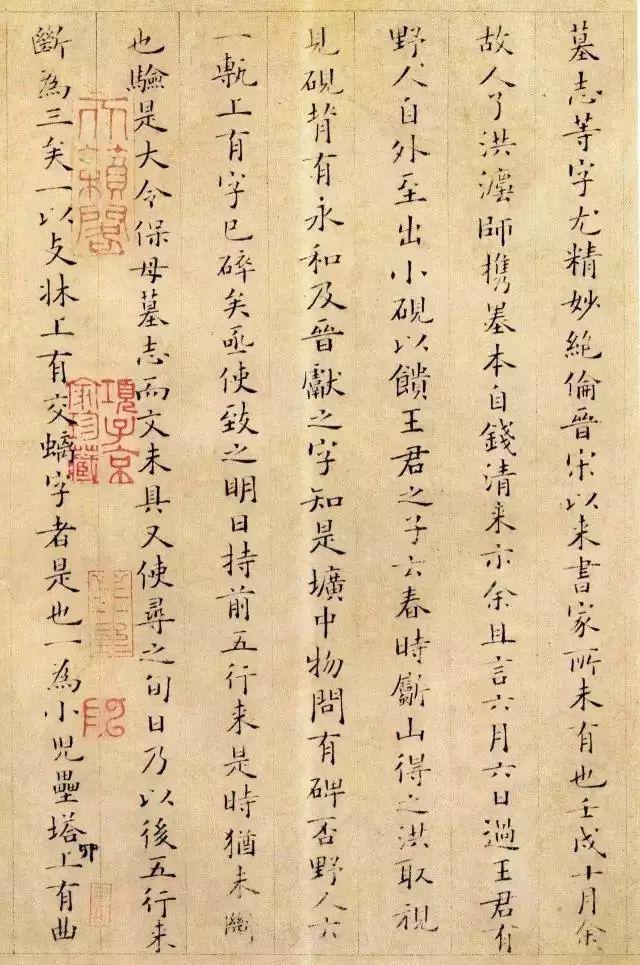 墓志等字尤精妙絶倫晉宋以来書家所未有也壬戌十月余
故人了洪灋師携墨本自錢清来示余且言六月六日過王君有
野人自外至出小硯以饋王君之子云春時斸山得之洪取視
見硯背有永和及晉獻之字知是壙中物問有碑否野人云
一甎上有字已碎矣亟使致之明日持前五行来是時猶未斷
也驗是大令保母墓志而文未具又使尋之旬日乃以後五行来
斷為三矣一以支牀上有交螭字者是也一為小児壘塔上有曲
天籟閣
項子京家珍藏
卯